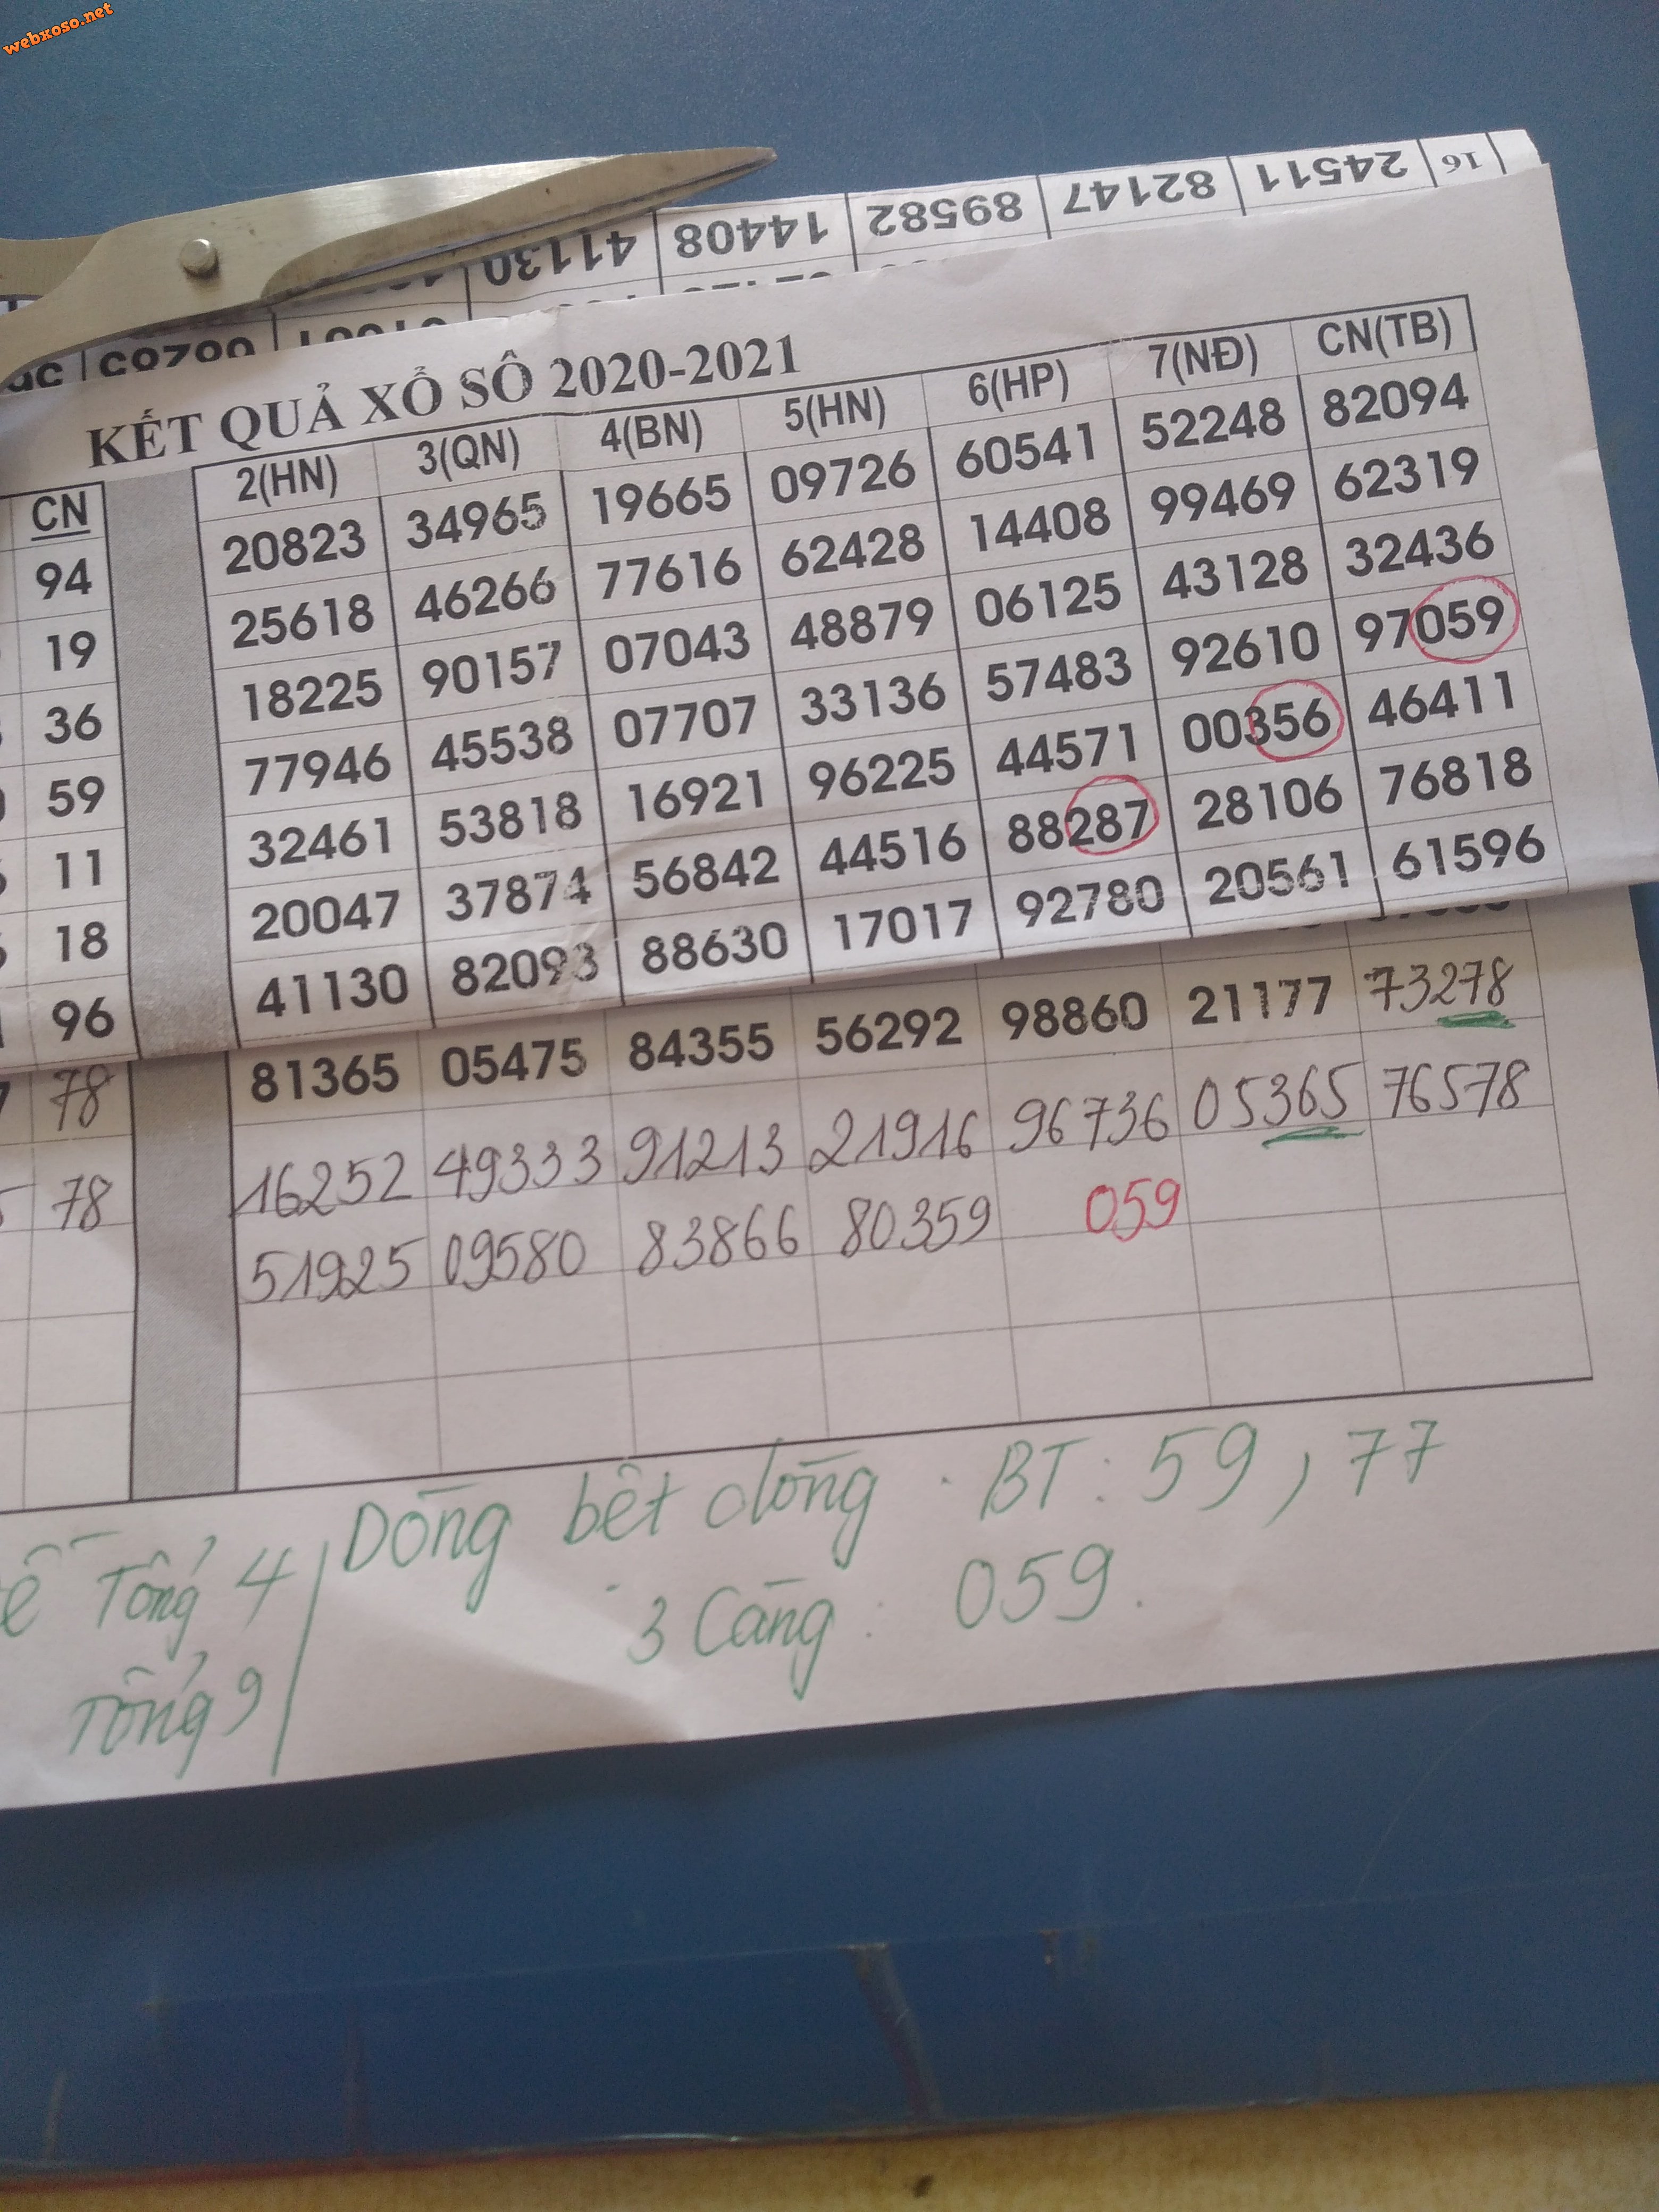 webxoso.net
16 24511 82147 89582 14408 41130
KẾT QUẢ XỔ SÔ 2020-2021
CN 2(HN) 3(QN) 4(BN) 5(HN) 6(HP) 7(NĐ) CN(TB)
94 20823 34965 19665 09726 60541 52248 82094
19 25618 46266 77616 62428 14408 99469 62319
36 18225 90157 07043 48879 06125 43128 32436
59 77946 45538 07707 33136 57483 92610 97059
11 32461 53818 16921 96225 44571 00356 46411
18 20047 37874 56842 44516 88287 28106 76818
96 41130 82093 88630 17017 92780 20561 61596
78 81365 05475 84355 56292 98860 21177 73278
78 16252 49333 91213 21916 96736 05365 76578
51925 09580 83866 80359 059
Tổng 4 Dòng bêt dòng . BT : 59 , 77
Tổng 9 3 Càng : 059.